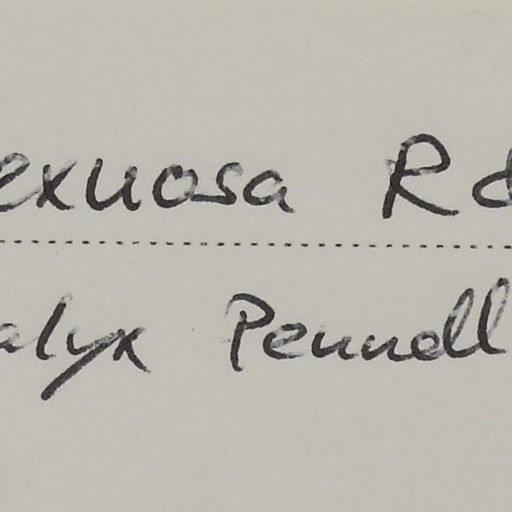 exuosa R &
alyx Pennell